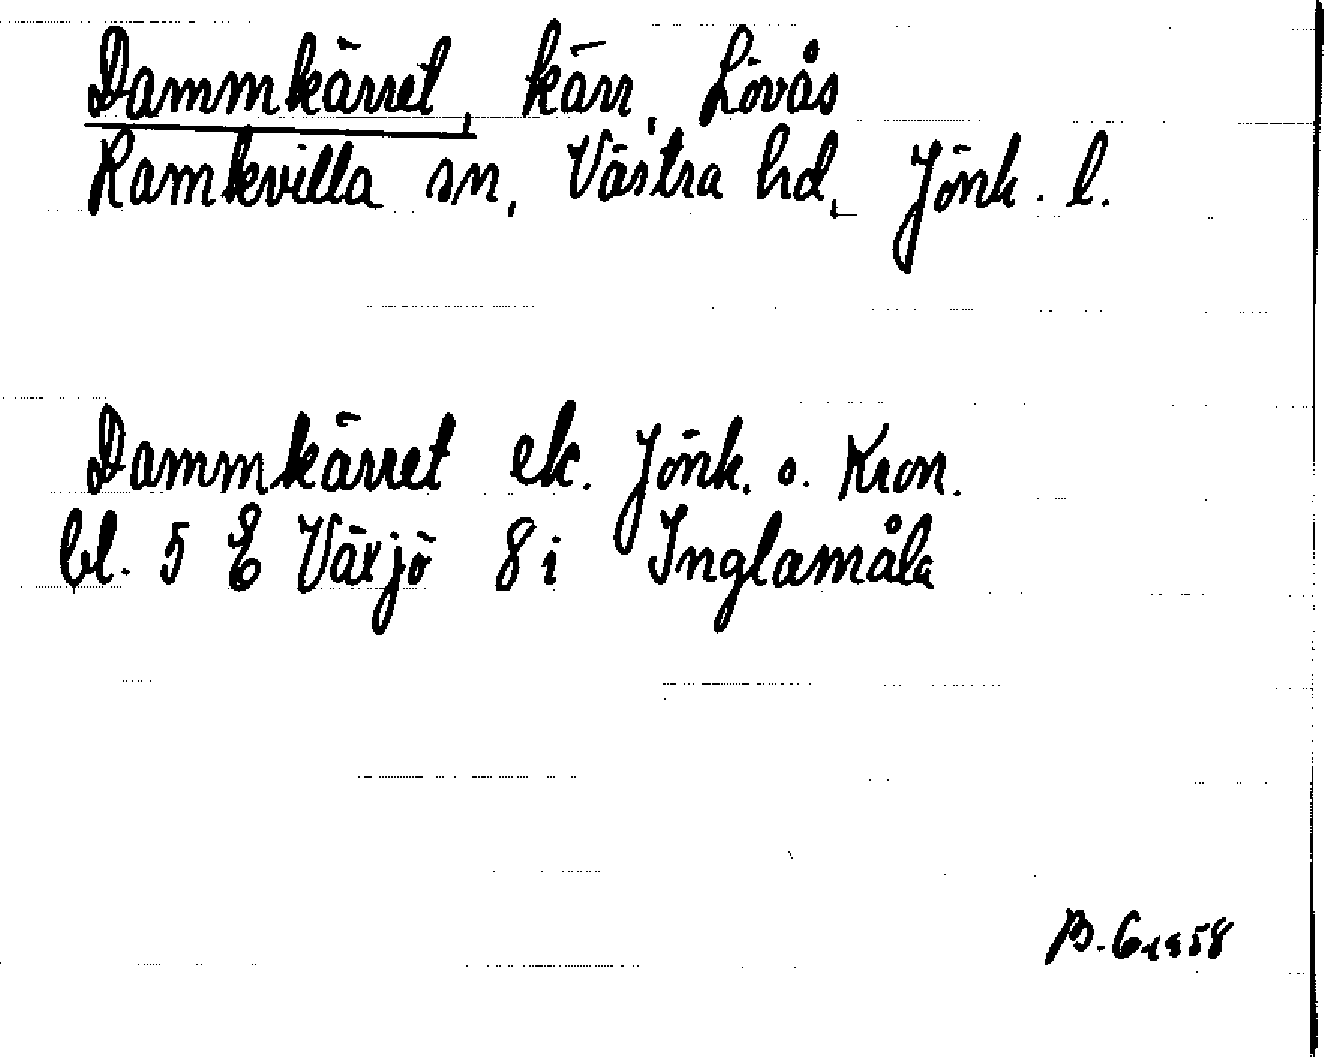 Dammkärret, kärr, Lövås
Ramkvilla sn, Västra hd, Jönk. l.
Dammkärret ek. Jönk. o. Kron.
bl. 5 E Växjö 8 i Inglamåla
B. G 1958